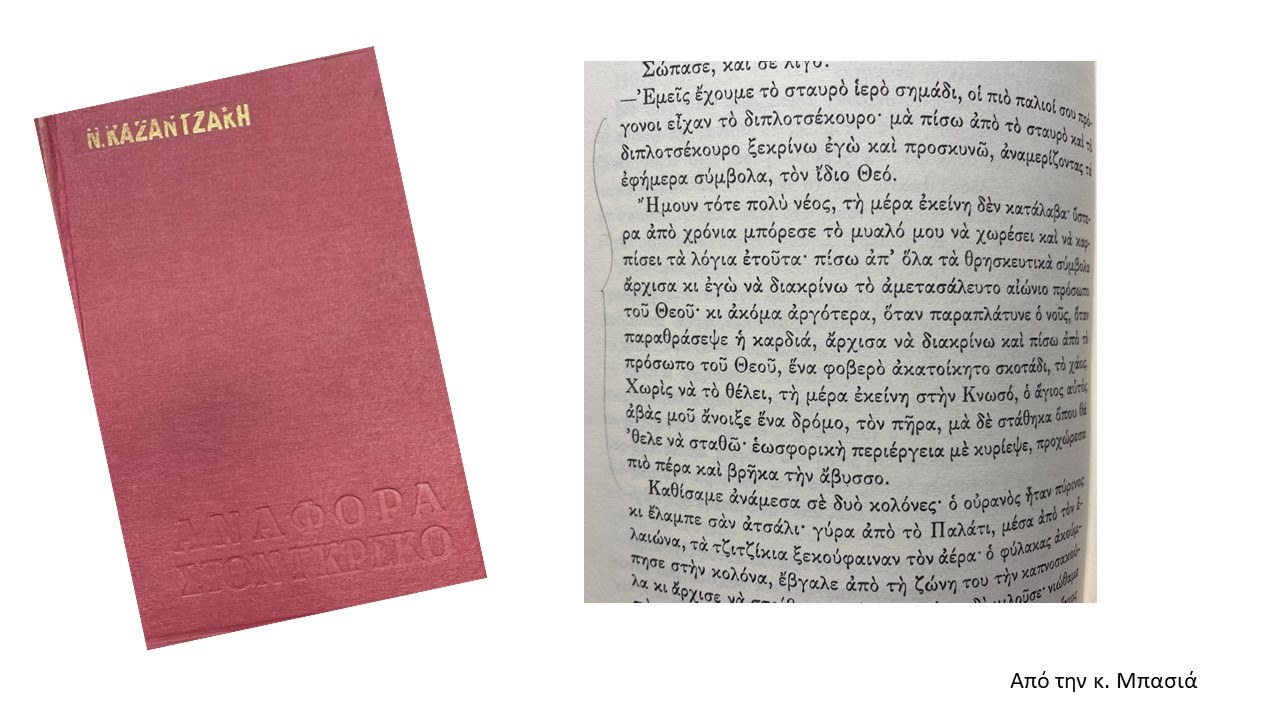 Ν. ΚΑΖΑΝΤΖΑΚΗ
ΑΝΑΦΟΡΑ
ΣΤΟΝ ΓΚΡΕΚΟ
Σώπασε, καὶ σὲ λίγο:
—Ἐμεῖς ἔχουμε τὸ σταυρὸ ἱερὸ σημάδι, οἱ πιὸ παλιοί σου πρό-
γονοι εἶχαν τὸ διπλοτσέκουρο· μὰ πίσω ἀπὸ τὸ σταυρὸ καὶ τὸ
διπλοτσέκουρο ξεκρίνω ἐγὼ καὶ προσκυνῶ, ἀναμερίζοντας τὰ
ἐφήμερα σύμβολα, τὸν ἴδιο Θεό.
Ἤμουν τότε πολὺ νέος, τὴ μέρα ἐκείνη δὲν κατάλαβα· ὕστε-
ρα ἀπὸ χρόνια μπόρεσε τὸ μυαλό μου νὰ χωρέσει καὶ νὰ καρ-
πίσει τὰ λόγια ἐτοῦτα· πίσω ἀπ’ ὅλα τὰ θρησκευτικὰ σύμβολα
ἄρχισα κι ἐγὼ νὰ διακρίνω τὸ ἀμετασάλευτο αἰώνιο πρόσωπο
τοῦ Θεοῦ· κι ἀκόμα ἀργότερα, ὅταν παραπλάτυνε ὁ νοῦς, ὅταν
παραθράσεψε ἡ καρδιά, ἄρχισα νὰ διακρίνω καὶ πίσω ἀπὸ τὸ
πρόσωπο τοῦ Θεοῦ, ἕνα φοβερὸ ἀκατοίκητο σκοτάδι, τὸ χάος.
Χωρὶς νὰ τὸ θέλει, τὴ μέρα ἐκείνη στὴν Κνωσό, ὁ ἅγιος αὐτὸς
ἀβὰς μοῦ ἄνοιξε ἕνα δρόμο, τὸν πῆρα, μὰ δὲ στάθηκα ὅπου θὰ
’θελε νὰ σταθῶ· ἑωσφορικὴ περιέργεια μὲ κυρίεψε, προχώρεσα
πιὸ πέρα καὶ βρῆκα τὴν ἄβυσσο.
Καθίσαμε ἀνάμεσα σὲ δυὸ κολόνες· ὁ οὐρανὸς ἦταν πύρινος
κι ἔλαμπε σὰν ἀτσάλι· γύρα ἀπὸ τὸ Παλάτι, μέσα ἀπὸ τὸν ἐ-
λαιώνα, τὰ τζιτζίκια ξεκούφαιναν τὸν ἀέρα· ὁ φύλακας ἀκούμ-
πησε στὴν κολόνα, ἔβγαλε ἀπὸ τὴ ζώνη του τὴν καπνοσακού-
λα κι ἄρχισε νὰ μιλοῦσε· νιώθαμε
Από την κ. Μπασιά